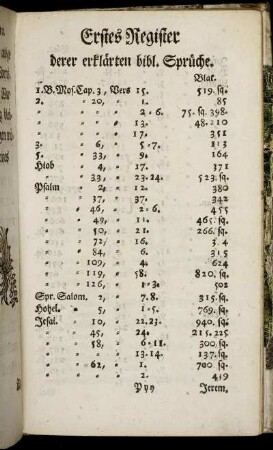 Erstes Register
derer erklärten bibl. Sprüche.
Blat.
1. B. Mos. Cap. 3, Vers 15. 519. sq.
2. " 20, " 1. 85
" " " 2-6. 75. sq. 398.
" " " 13. 48-
" " " 17. 351
3. " 6, " 5-7. 113
5. " 33, " 9. 164
Hiob " 4, " 17. 371
" " 33, " 23-24. 523. sq.
Psalm " 2, " 12. 380
" " 37, " 37. 342
" " 46, " 2-6. 455
" " 49, " 11. 465. sq.
" " 50, " 21. 266. sq.
" " 72, " 16.
" " 84, " 6. 315
" " 109, " 4. 624
" " 119, " 58. 820. sq.
" " 126, " 1-3. 502
Spr. Salom. 2, " 7.8. 315. sq.
Hohel. " 5, " 1-5. 769. sq.
Jesai. " 10, " 22.23. 940. sq.
" " 45, " 24. 215.225
" " 58, " 6-11. 300. sq.
" " " 13-14. 137. sq.
" " 62, " 1. 700. sq.
" " " 2. 459
Yyy Jerem.